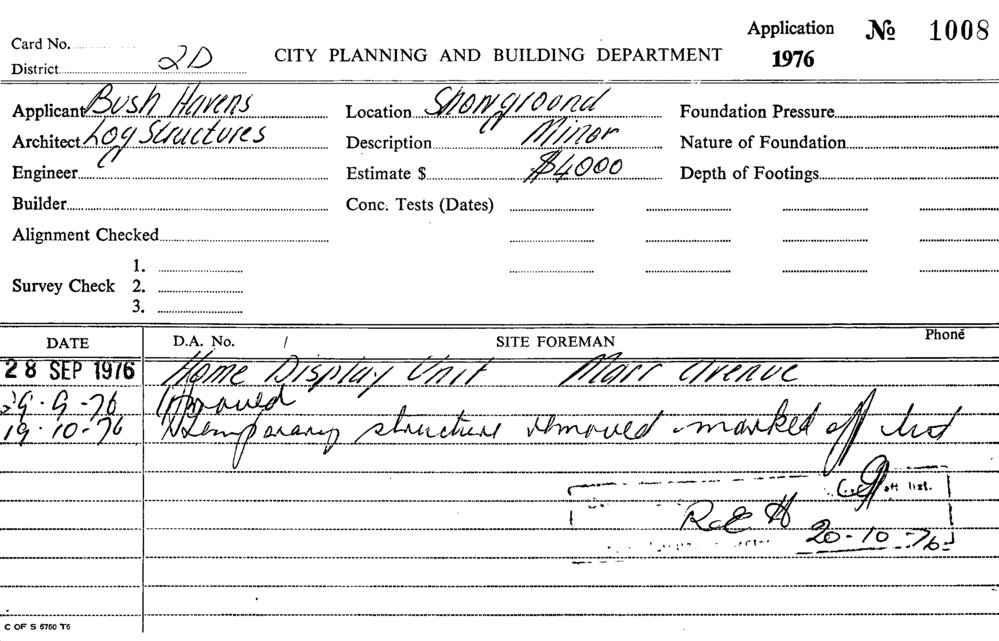 Application № 1008
Card No.
District 2D CITY PLANNING AND BUILDING DEPARTMENT 1976
Applicant Bush Havens Location Showground Foundation Pressure
Architect Log Structures Description Minor Nature of Foundation
Engineer Estimate $ $4000 Depth of Footings
Builder Conc. Tests (Dates)
Alignment Checked
1.
Survey Check 2.
3.
DATE D.A. No. / SITE FOREMAN Phone
28 SEP 1976 Home Display Unit Marr Avenue
29-9-76 Approved
19-10-76 Temporary structure removed marked off list
off list.
R.E.H
20-10-76
C OF S 6760 T6